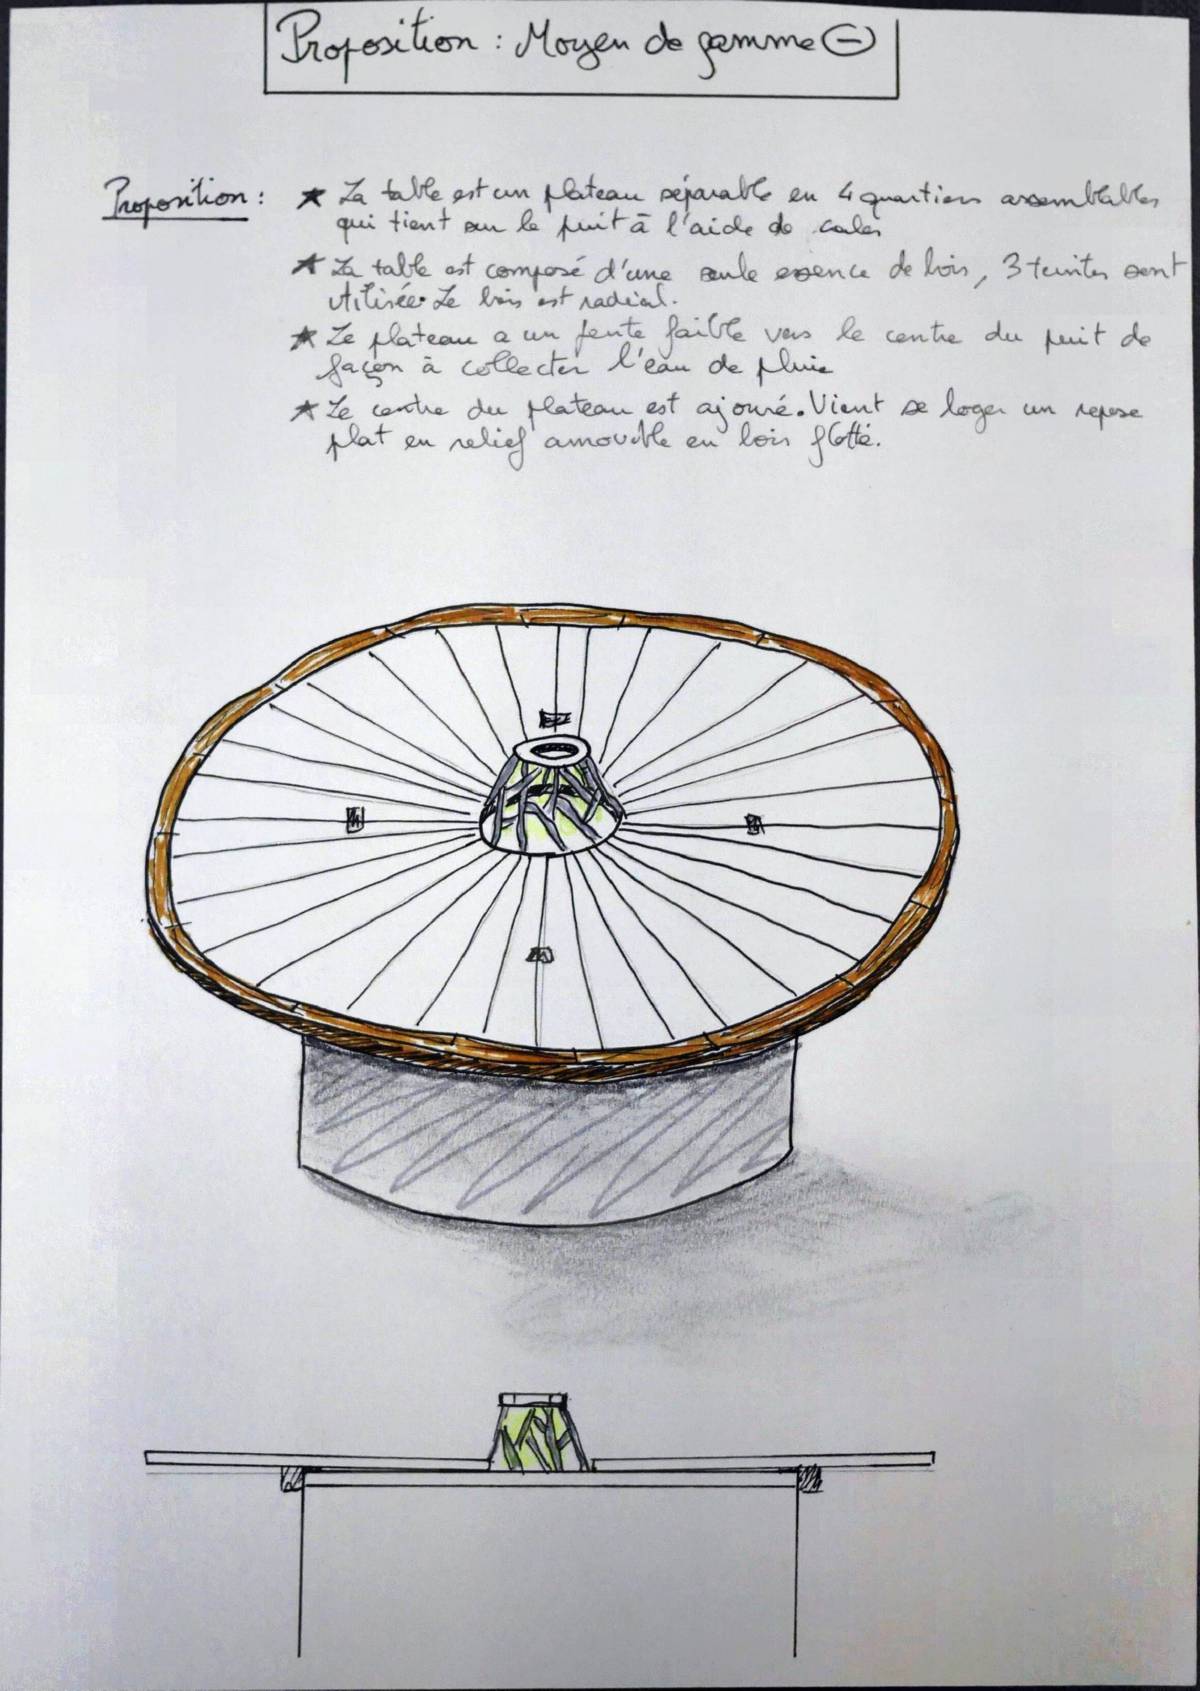 Proposition : Moyen de gamme ⊖
Proposition : ★ La table est un plateau séparable en 4 quartiers assemblables
qui tient sur le puit à l'aide de cales
★ La table est composé d'une seule essence de bois, 3 teintes sont
utilisée. Le bois est radial.
★ Le plateau a un pente faible vers le centre du puit de
façon à collecter l'eau de pluie
★ Le centre du plateau est ajouré. Vient se loger un repose
plat en relief amovible en bois flotté.